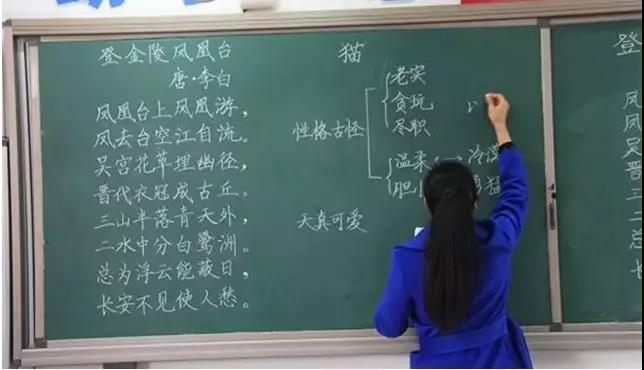 登·金陵凤凰台
唐·李白
凤凰台上凤凰游，
凤去台空江自流。
吴宫花草埋幽径，
晋代衣冠成古丘。
三山半落青天外，
二水中分白鹭洲。
总为浮云能蔽日，
长安不见使人愁。
猫
性格古怪
老实
贪玩
尽职
温柔
冷漠
胆
猛
天真可爱
登
凤
凤
吴
晋
三